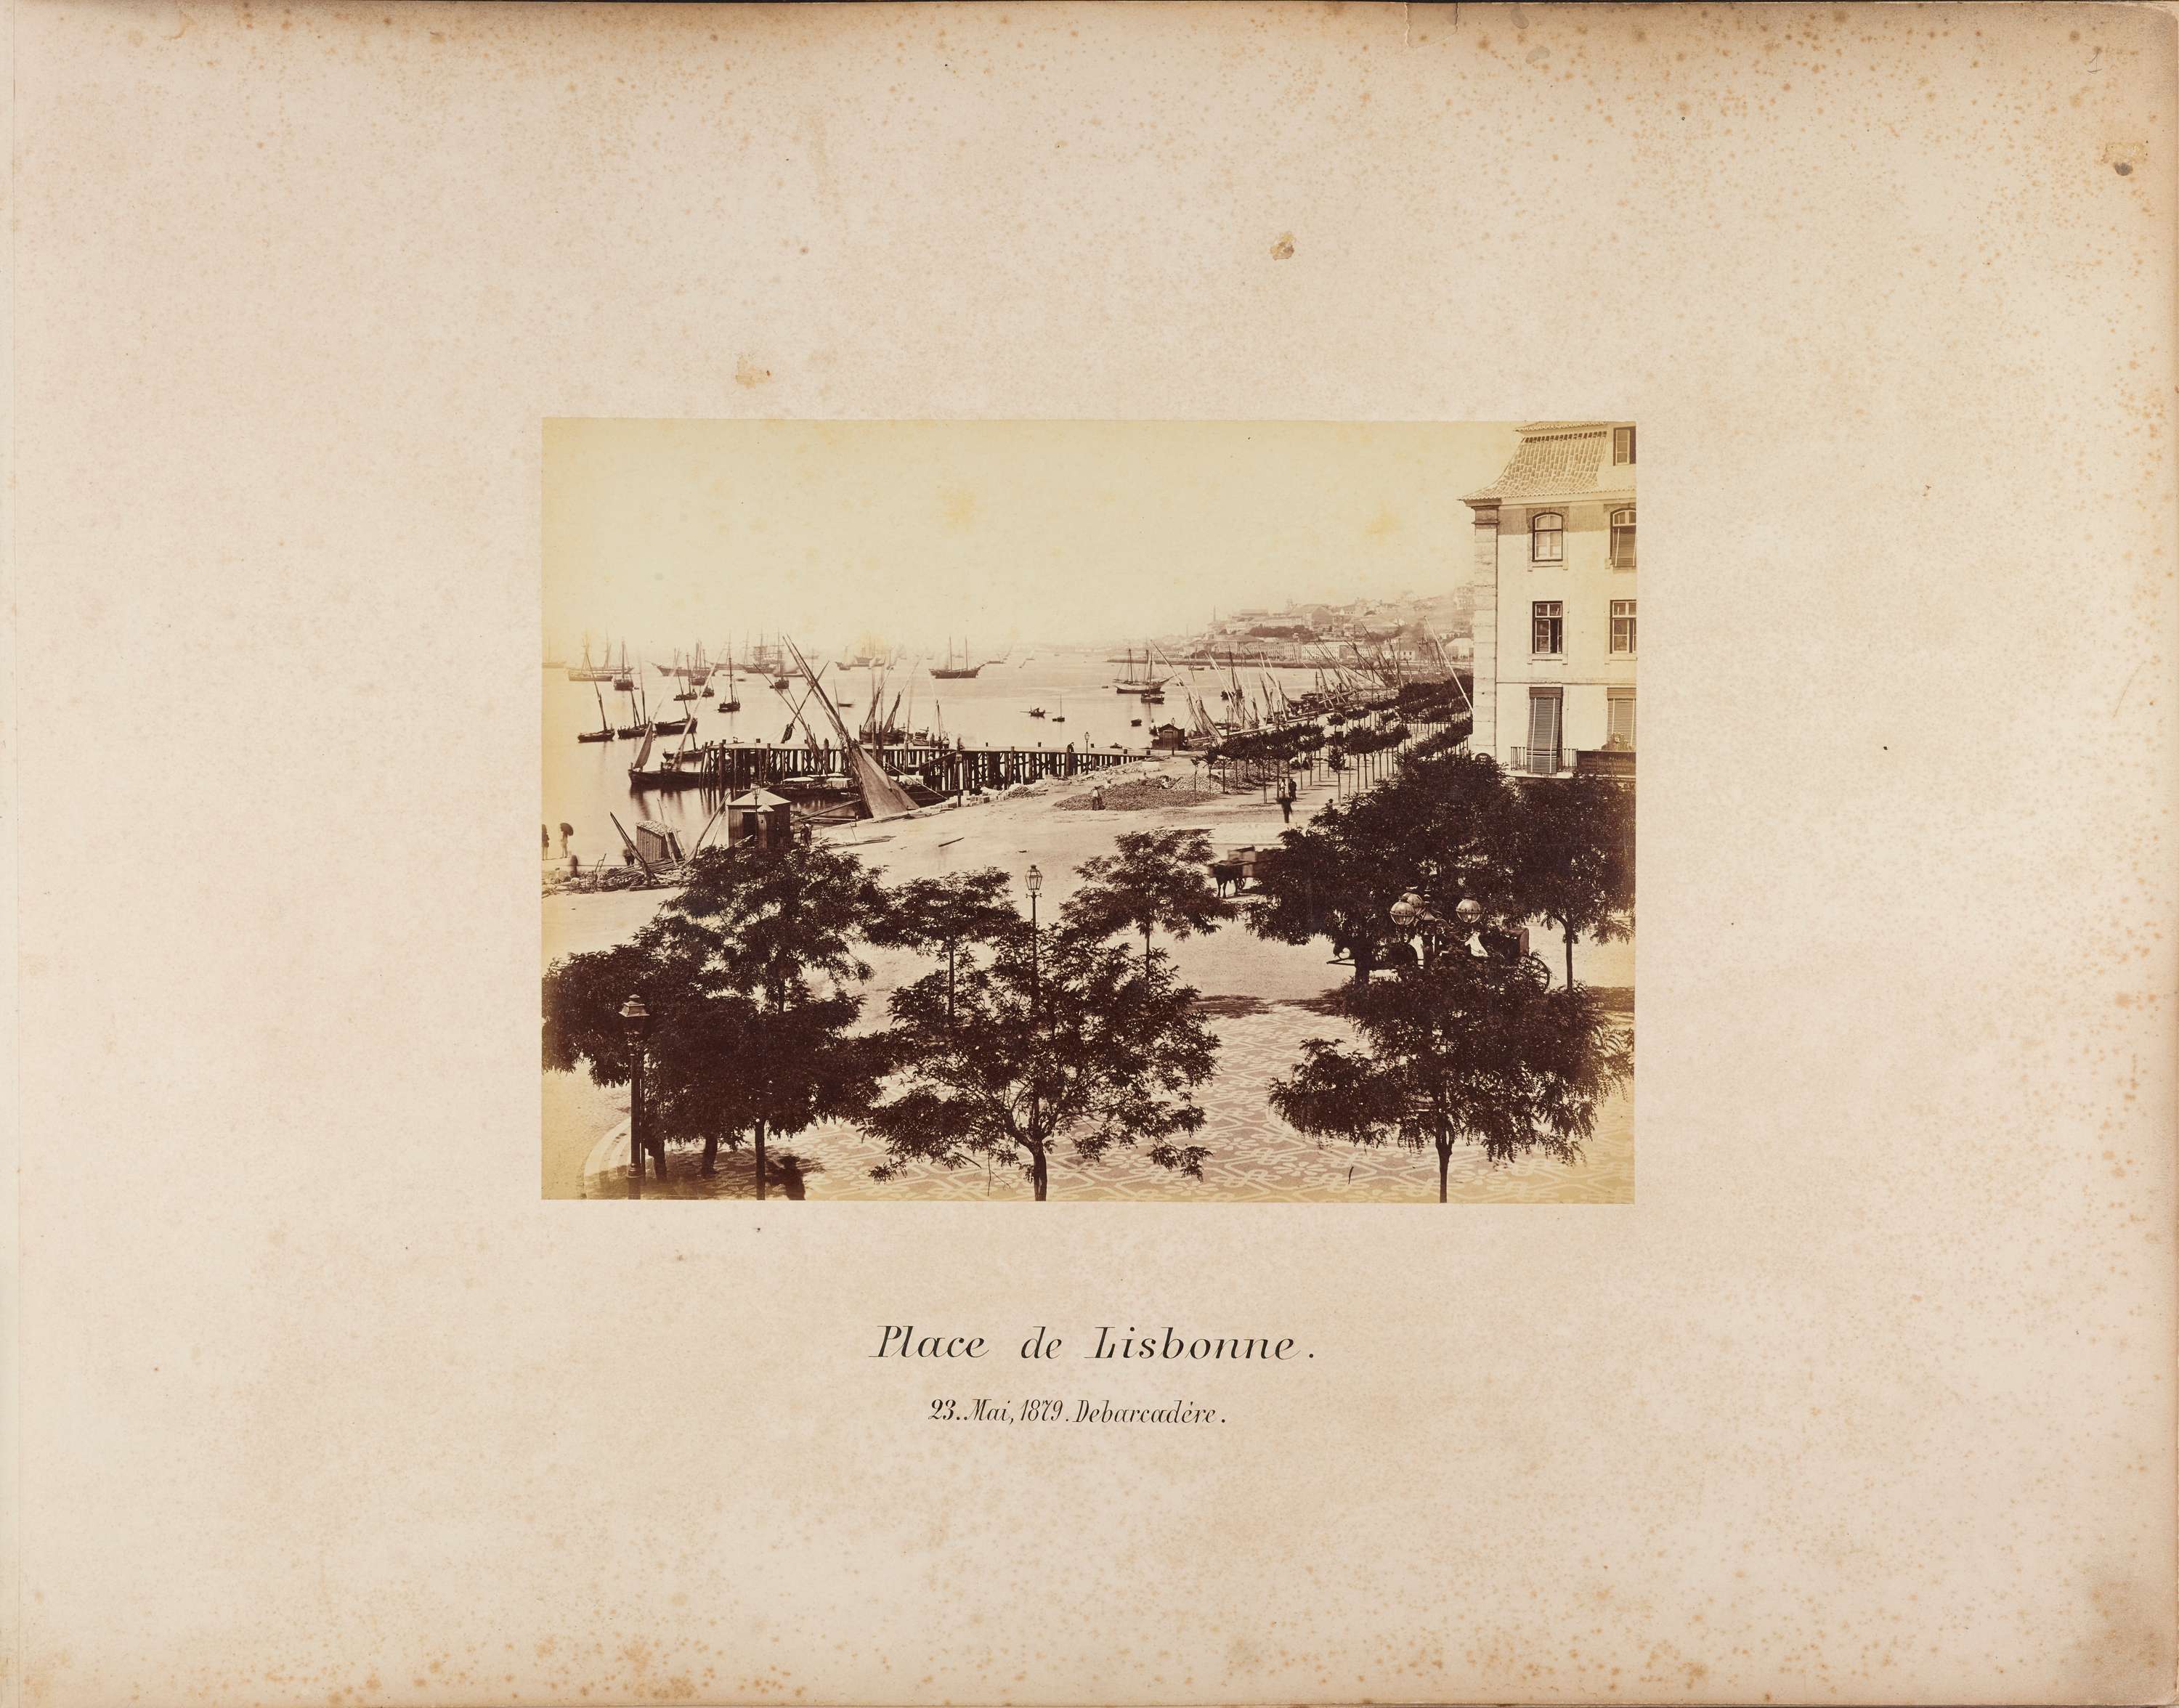 1
Place de Lisbonne.
23. Mai, 1879. Debarcadére.